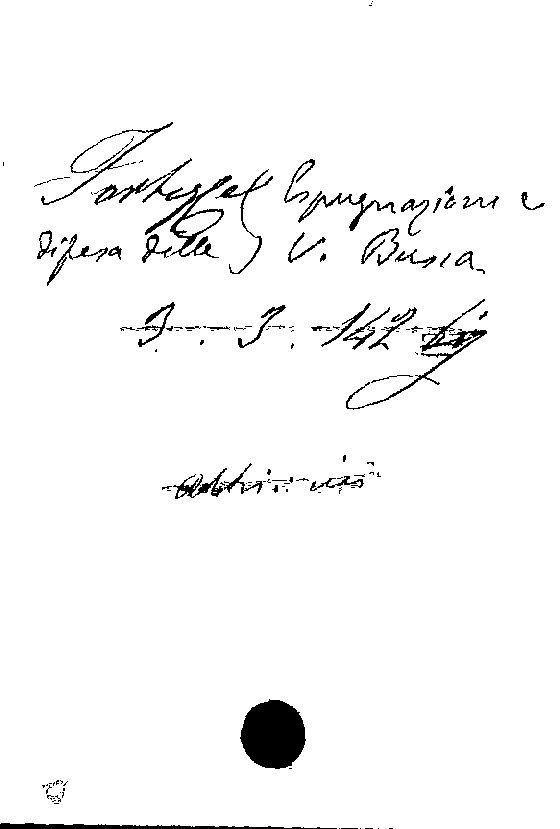 Fortezze (Espugnazione e
difesa delle) V. Busca.
3. 3. 142